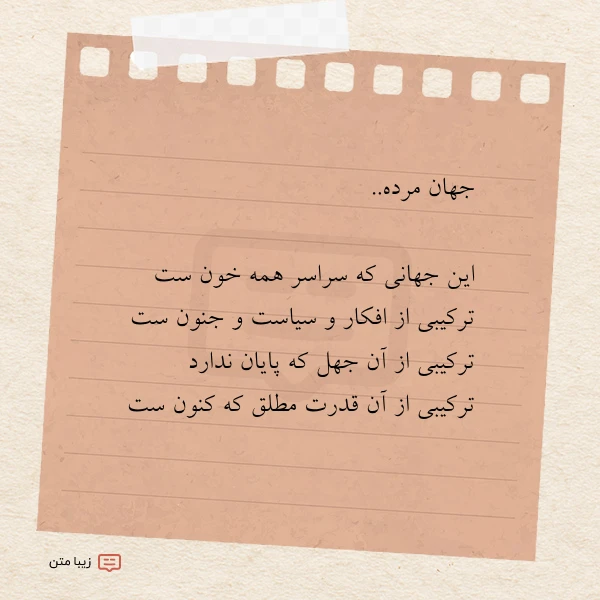 جهان مرده..
این جهانی که سراسر همه خون ست
ترکیبی از افکار و سیاست و جنون ست
ترکیبی از آن جهل که پایان ندارد
ترکیبی از آن قدرت مطلق که کنون ست
زیبا متن